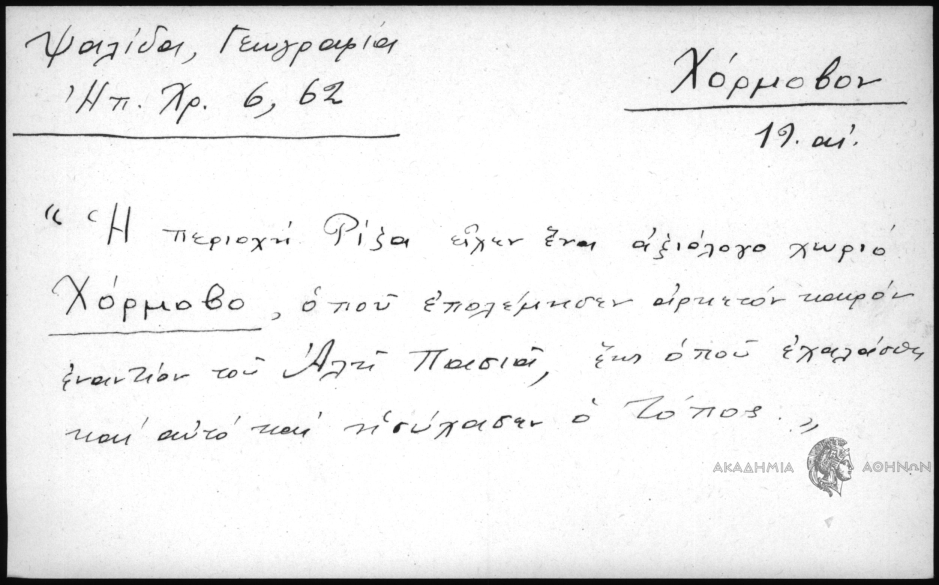 Ψαλίδα, Γεωγραφία
Ἠπ. Χρ. 6, 62
Χόρμοβον
19. αἰ.
“ Ἡ περιοχή Ρίζα εἶχεν ἕνα ἀξιόλογο χωριό
Χόρμοβο, ὁποῦ ἐπολέμησεν ἀρκετόν καιρόν
ἐναντίον τοῦ Ἀλῆ Πασιᾶ, ἕως ὁποῦ ἐχαλάσθη
καί αὐτό καί ἡσύχασεν ὁ τόπος. „
ΑΚΑΔΗΜΙΑ ΑΘΗΝΩΝ